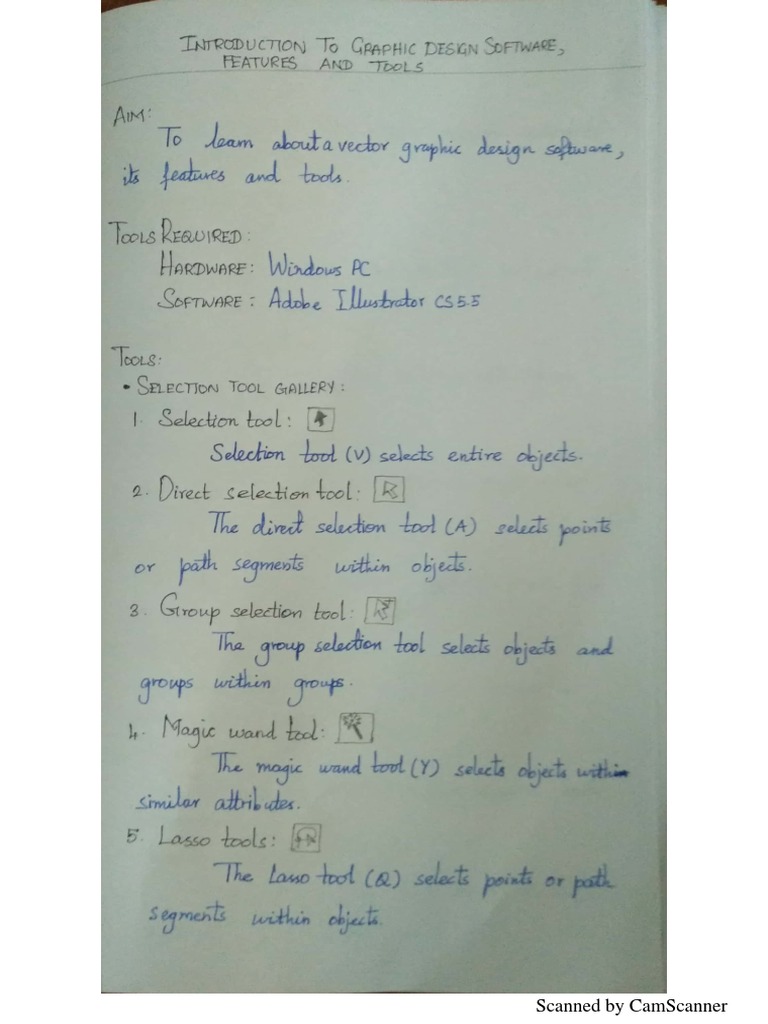 INTRODUCTION TO GRAPHIC DESIGN SOFTWARE,
FEATURES AND TOOLS
AIM:
To learn about a vector graphic design software,
its features and tools.
TOOLS REQUIRED:
HARDWARE: Windows PC
SOFTWARE: Adobe Illustrator CS5.5
TOOLS:
• SELECTION TOOL GALLERY:
1. Selection tool:
Selection tool (V) selects entire objects.
2. Direct selection tool:
The direct selection tool (A) selects points
or path segments within objects.
3. Group selection tool:
The group selection tool selects objects and
groups within groups.
4. Magic wand tool:
The magic wand tool (Y) selects objects within
similar attributes.
5. Lasso tools:
The Lasso tool (Q) selects points or path
segments within objects.
Scanned by CamScanner